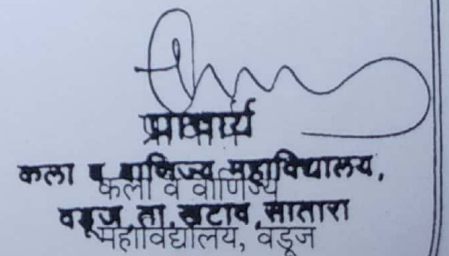 प्राचार्य
कला व वाणिज्य महाविद्यालय,
कला व वाणिज्य
वडूज,ता.खटाव,सातारा
महाविद्यालय, वडूज